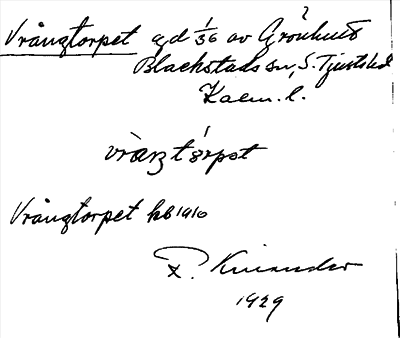 Vrångtorpet gd 1/36 av Grönhult
Blackstads sn, S. Tjusts hd
Kalm. l.
vràŋtórpət
Vrångtorpet kb 1910
R. Kinander
1929